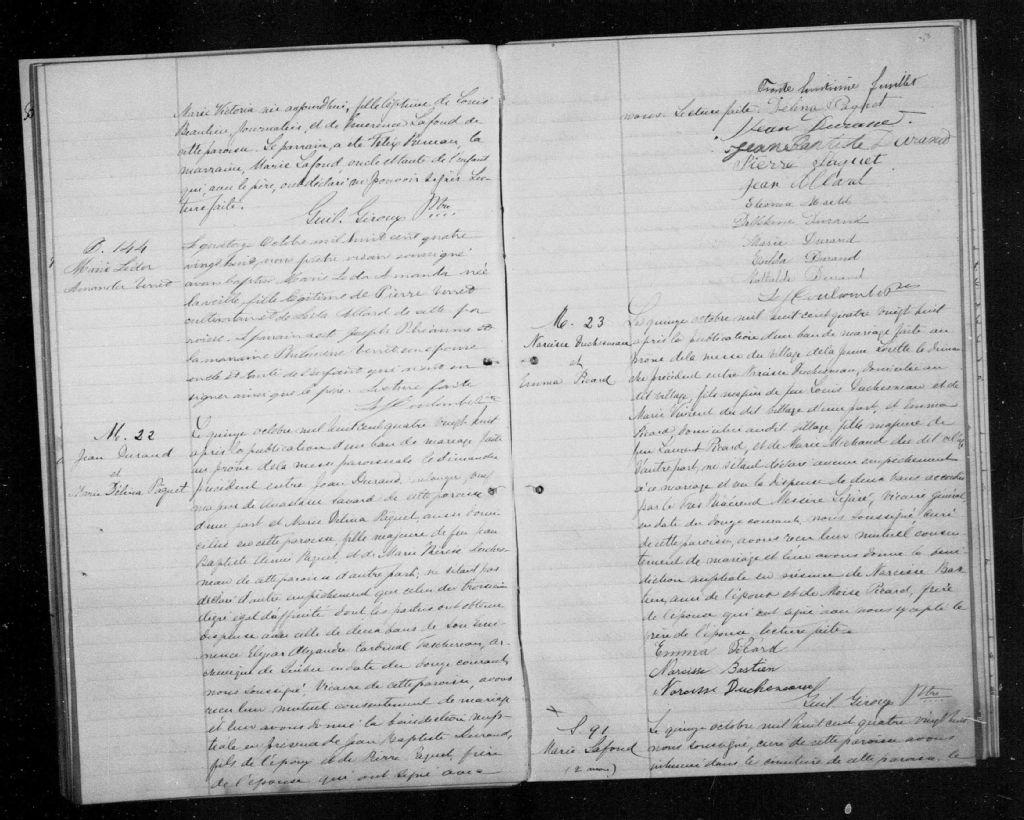 Marie Victoria née aujourd'hui, fille légitime de Louis
Beaulieu, Journalier, et de Emerence Lafond de
cette paroisse. Le parrain, a été Félix Bureau, la
marraine, Marie Lafond, oncle et tante de l'enfant
qui, avec le père, ont déclaré ne pouvoir signer. Lec-
ture faite.
Guil. Giroux Ptre
B. 144
Marie Léda
Amanda Verret
Le quatorze Octobre mil huit cent quatre
vingt huit, nous prêtre vicaire soussigné
avons baptisé Marie Léda Amanda née
la veille, fille légitime de Pierre Verret
cultivateur et de Léda Allard de cette pa-
roisse. Le parrain a été Joseph
la marraine Philomène Verret son épouse
oncle et tante de l'enfant qui n'ont su
signer ainsi que le père. Lecture faite
M. 22
Jean Durand
et
Marie Délina Paquet
Le quinze octobre mil huit cent quatre vingt huit
après la publication d'un ban de mariage faite
au prône de la messe paroissiale le dimanche
précédent entre Jean Durand, boulanger, veuf
majeur de Anastasie Savard de cette paroisse
d'une part et Marie Délina Paquet, aussi domi-
ciliée en cette paroisse fille majeure de feu Jean
Baptiste Paquet, et de Marie Duches-
neau de cette paroisse d'autre part; ne s'étant pas
déclaré d'autre empêchement que celui du troisième
degré égal d'affinité dont les parties ont obtenu
dispense avec celle de deux bans de Son Émi-
nence Elzéar Alexandre Cardinal Taschereau, Ar-
chevêque de Québec en date du douze courant
nous soussigné, Vicaire de cette paroisse, avons
reçu leur mutuel consentement de mariage
et leur avons donné la bénédiction nup-
tiale en présence de Jean Baptiste Durand,
fils de l'époux et de Pierre Paquet, frère
de l'épouse qui ont signé avec
Trente huitième feuillet
nous. Lecture faite. Délina Paquet
Jean Durand
Jean Baptiste Durand
Pierre Paquet
Jean Allard
Eleonia
Delphine Durand
Marie Durand
Exilda Durand
Mathilde Durand
M. 23
Narcisse Duchesneau
et
Emma Picard
Le quinze octobre mil huit cent quatre vingt huit
après la publication d'un ban de mariage faite au
prône de la messe du village de la jeune Lorette le diman-
che précédent entre Narcisse Duchesneau, domicilié au
dit village, fils majeur de feu Louis Duchesneau et de
Marie Vincent du dit village d'une part, et Emma
Picard, domiciliée au dit village, fille majeure de
feu Laurent Picard, et de Marie Michaud du dit village
d'autre part, ne s'étant déclaré aucun empêchement
à ce mariage et vu la dispense de deux bans accordée
par le Très Révérend Messire Légaré, Vicaire Général
en date du douze courant, nous soussigné, curé
de cette paroisse, avons reçu leur mutuel consen-
tement de mariage et leur avons donné la béné-
diction nuptiale en présence de Narcisse Bas-
tien, ami de l'époux et de Moïse Picard, frère
de l'épouse qui ont signé avec nous excepté le
frère de l'épouse. Lecture faite.
Emma Picard
Narcisse Bastien
Narcisse Duchesneau
Guil. Giroux Ptre
S. 91
Marie Lafond
(2 mois)
Le quinze octobre mil huit cent quatre vingt huit
nous soussigné, curé de cette paroisse avons
inhumé dans le cimetière de cette paroisse, le